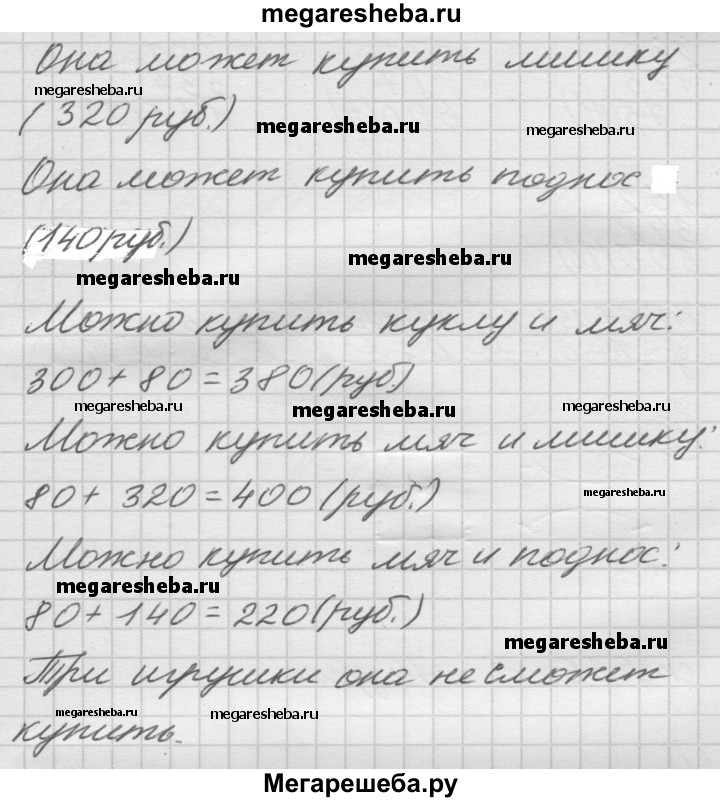 megaresheba.ru
Она может купить мишку
megaresheba.ru
(320 руб.)
megaresheba.ru
megaresheba.ru
Она может купить поднос
(140 руб.)
megaresheba.ru
megaresheba.ru
Можно купить куклу и мяч:
300+80=380(руб.)
megaresheba.ru
megaresheba.ru
megaresheba.ru
Можно купить мяч и мишку:
80+320=400(руб.)
megaresheba.ru
Можно купить мяч и поднос:
megaresheba.ru
80+140=220(руб.)
megaresheba.ru
Три игрушки она не сможет
megaresheba.ru
megaresheba.ru
купить.
Мегарешеба.ру